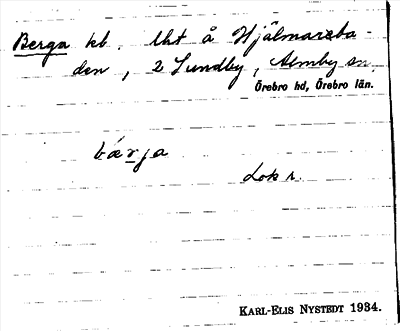 Berga kb. lht å Hjälmarsba-
den, 2 Lundby, Almby sn,
Örebro hd, Örebro län.
bærja
Lok r.
KARL-ELIS NYSTEDT 1934.